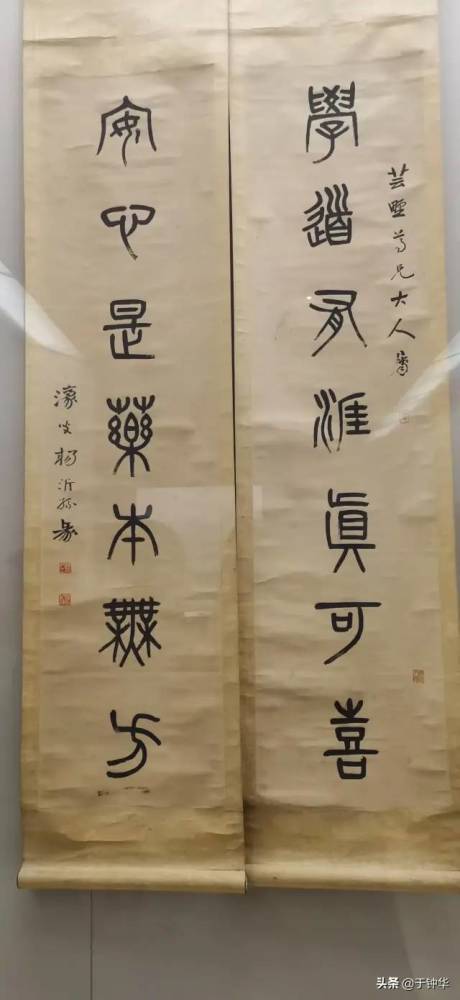 芸尊兄大人屬
學道有涯眞可喜
安心是藥本無方
濠叟楊沂孫篆
头条 @于钟华